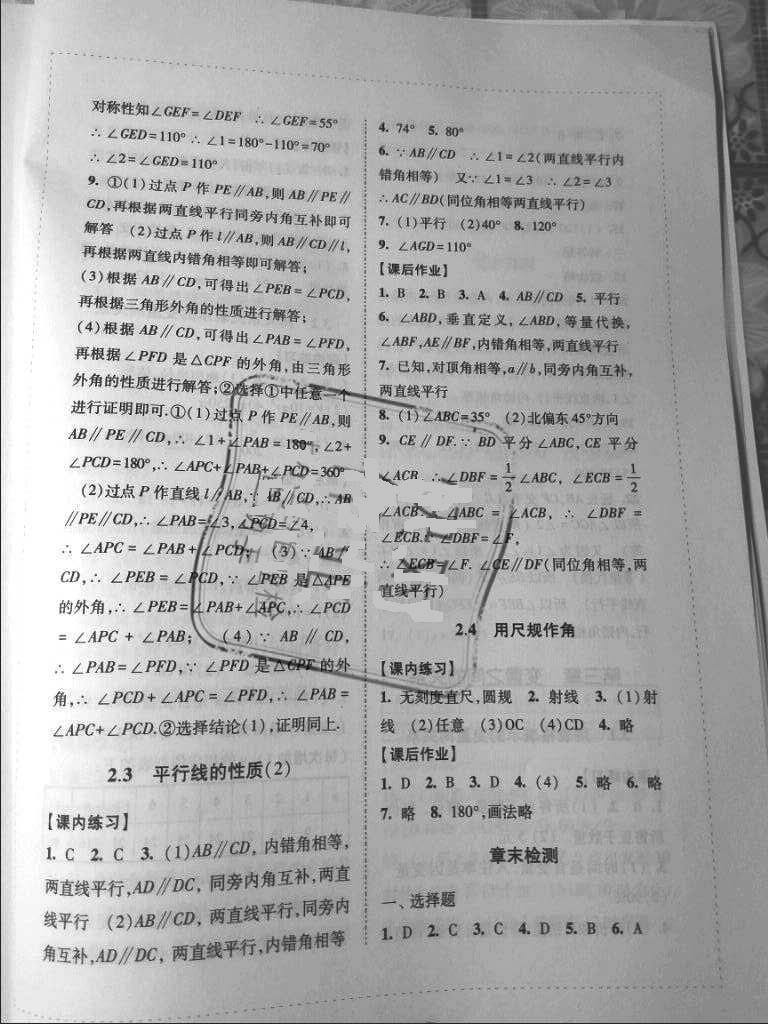 对称性知∠GEF=∠DEF ∴∠GEF=55°
∴∠GED=110°∴∠1=180°-110°=70°
∴∠2=∠GED=110°
9. ①(1)过点 P 作 PE∥AB,则 AB∥PE∥
CD,再根据两直线平行同旁内角互补即可
解答 (2)过点 P 作 l∥AB,则 AB∥CD∥l,
再根据两直线内错角相等即可解答;
(3)根据 AB∥CD,可得出∠PEB=∠PCD,
再根据三角形外角的性质进行解答;
(4)根据 AB∥CD,可得出∠PAB=∠PFD,
再根据∠PFD 是△CPF 的外角,由三角形
外角的性质进行解答;②选择①中任意一个
进行证明即可.①(1)过点 P 作 PE∥AB,则
AB∥PE∥CD,∴∠1+∠PAB=180°,∠2+
∠PCD=180°,∴∠APC+∠PAB+∠PCD=360°
(2)过点 P 作直线 l∥AB,∵AB∥CD,∴AB
∥PE∥CD,∴∠PAB=∠3,∠PCD=∠4,
∴∠APC=∠PAB+∠PCD; (3)∵AB∥
CD,∴∠PEB=∠PCD,∵∠PEB 是△APE
的外角,∴∠PEB=∠PAB+∠APC,∴∠PCD
=∠APC+∠PAB; (4)∵AB∥CD,
∴∠PAB=∠PFD,∵∠PFD 是△CPF 的外
角,∴∠PCD+∠APC=∠PFD,∴∠PAB=
∠APC+∠PCD.②选择结论(1),证明同上.
2.3 平行线的性质(2)
【课内练习】
1. C 2. C 3. (1)AB∥CD, 内错角相等,
两直线平行,AD∥DC, 同旁内角互补,两直
线平行 (2)AB∥CD, 两直线平行,同旁内
角互补,AD∥DC, 两直线平行,内错角相等
4. 74° 5. 80°
6. ∵AB∥CD ∴∠1=∠2(两直线平行内
错角相等) 又∵∠1=∠3 ∴∠2=∠3
∴AC∥BD(同位角相等两直线平行)
7. (1)平行 (2)40° 8. 120°
9. ∠AGD=110°
【课后作业】
1. B 2. B 3. A 4. AB∥CD 5. 平行
6. ∠ABD,垂直定义,∠ABD,等量代换,
∠ABF,AE∥BF,内错角相等,两直线平行
7. 已知,对顶角相等,a∥b,同旁内角互补,
两直线平行
8. (1)∠ABC=35° (2)北偏东 45°方向
9. CE∥DF.∵BD 平分∠ABC,CE 平分
∠ACB ∴∠DBF=1/2∠ABC, ∠ECB=1/2
∠ACB ∠ABC=∠ACB, ∴∠DBF=
∠ECB.∵∠DBF=∠F,
∴∠ECB=∠F. ∠CE∥DF(同位角相等,两
直线平行)
2.4 用尺规作角
【课内练习】
1. 无刻度直尺,圆规 2. 射线 3. (1)射
线 (2)任意 (3)OC (4)CD 4. 略
【课后作业】
1. D 2. B 3. D 4. (4) 5. 略 6. 略
7. 略 8. 180°,画法略
章末检测
一、选择题
1. D 2. C 3. C 4. D 5. B 6. A